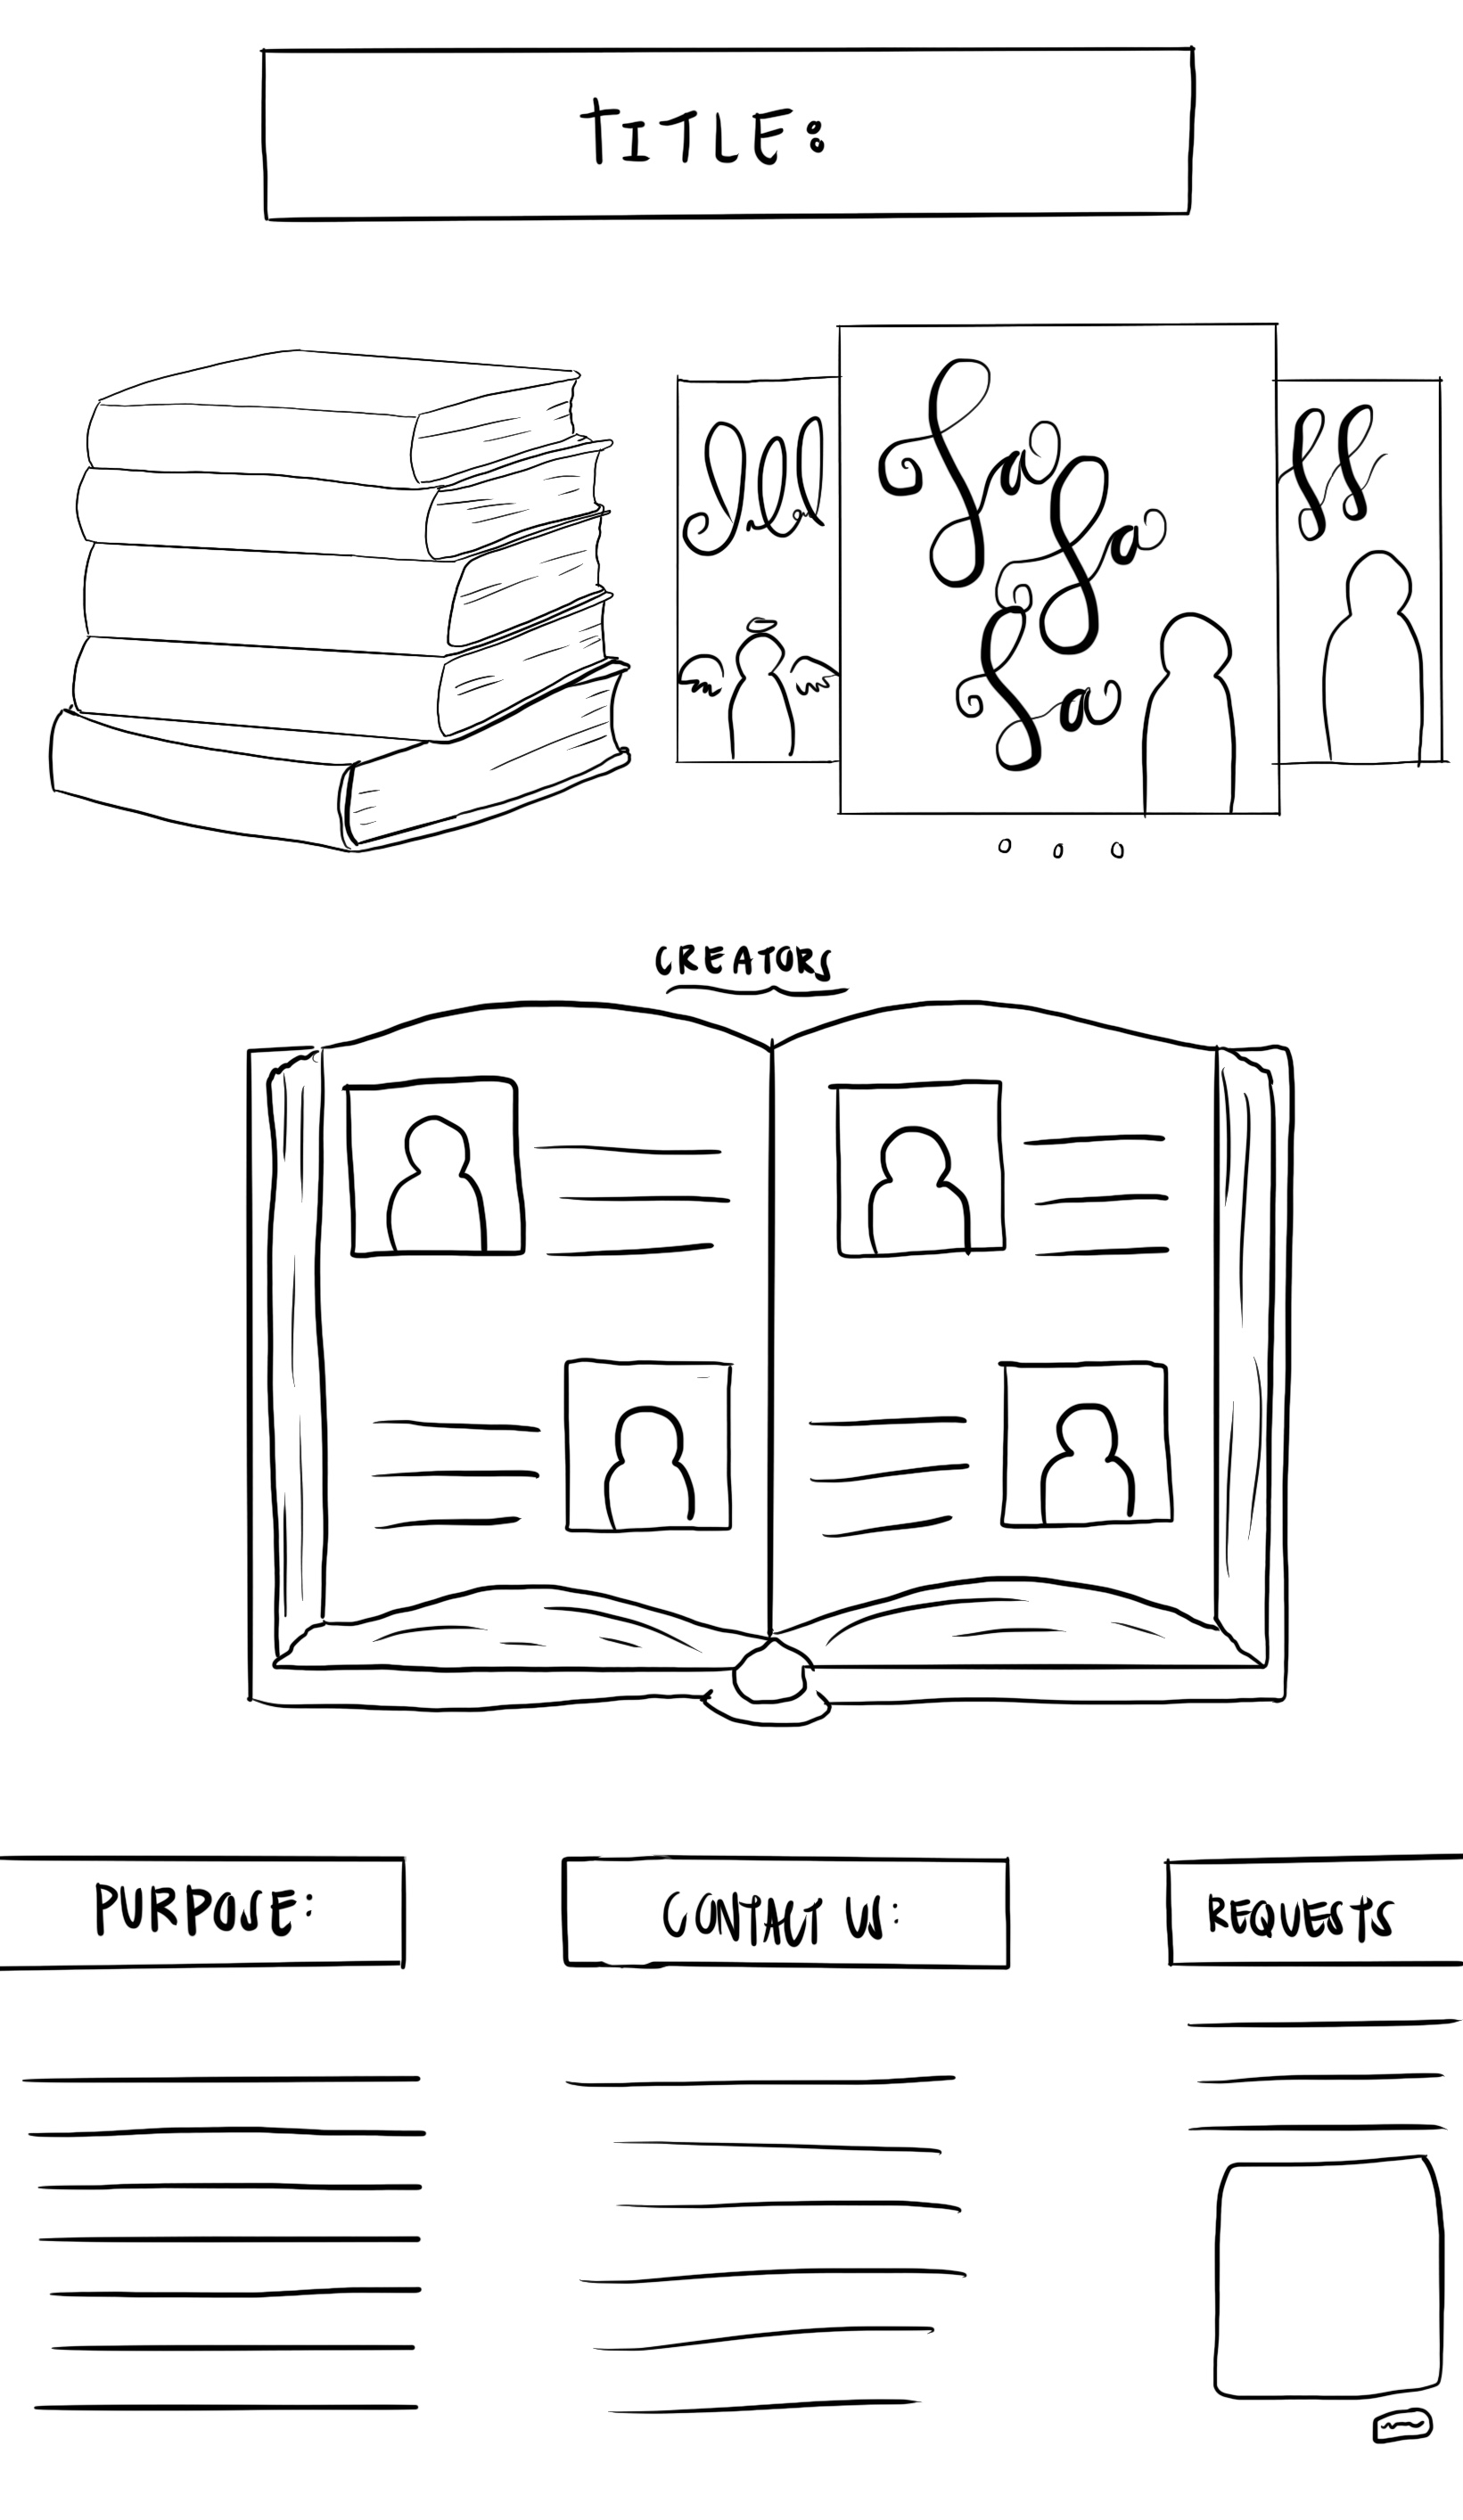 TITLE:
La
La
La
CREATORS
PURPOSE:
CONTACT US:
REQUESTS